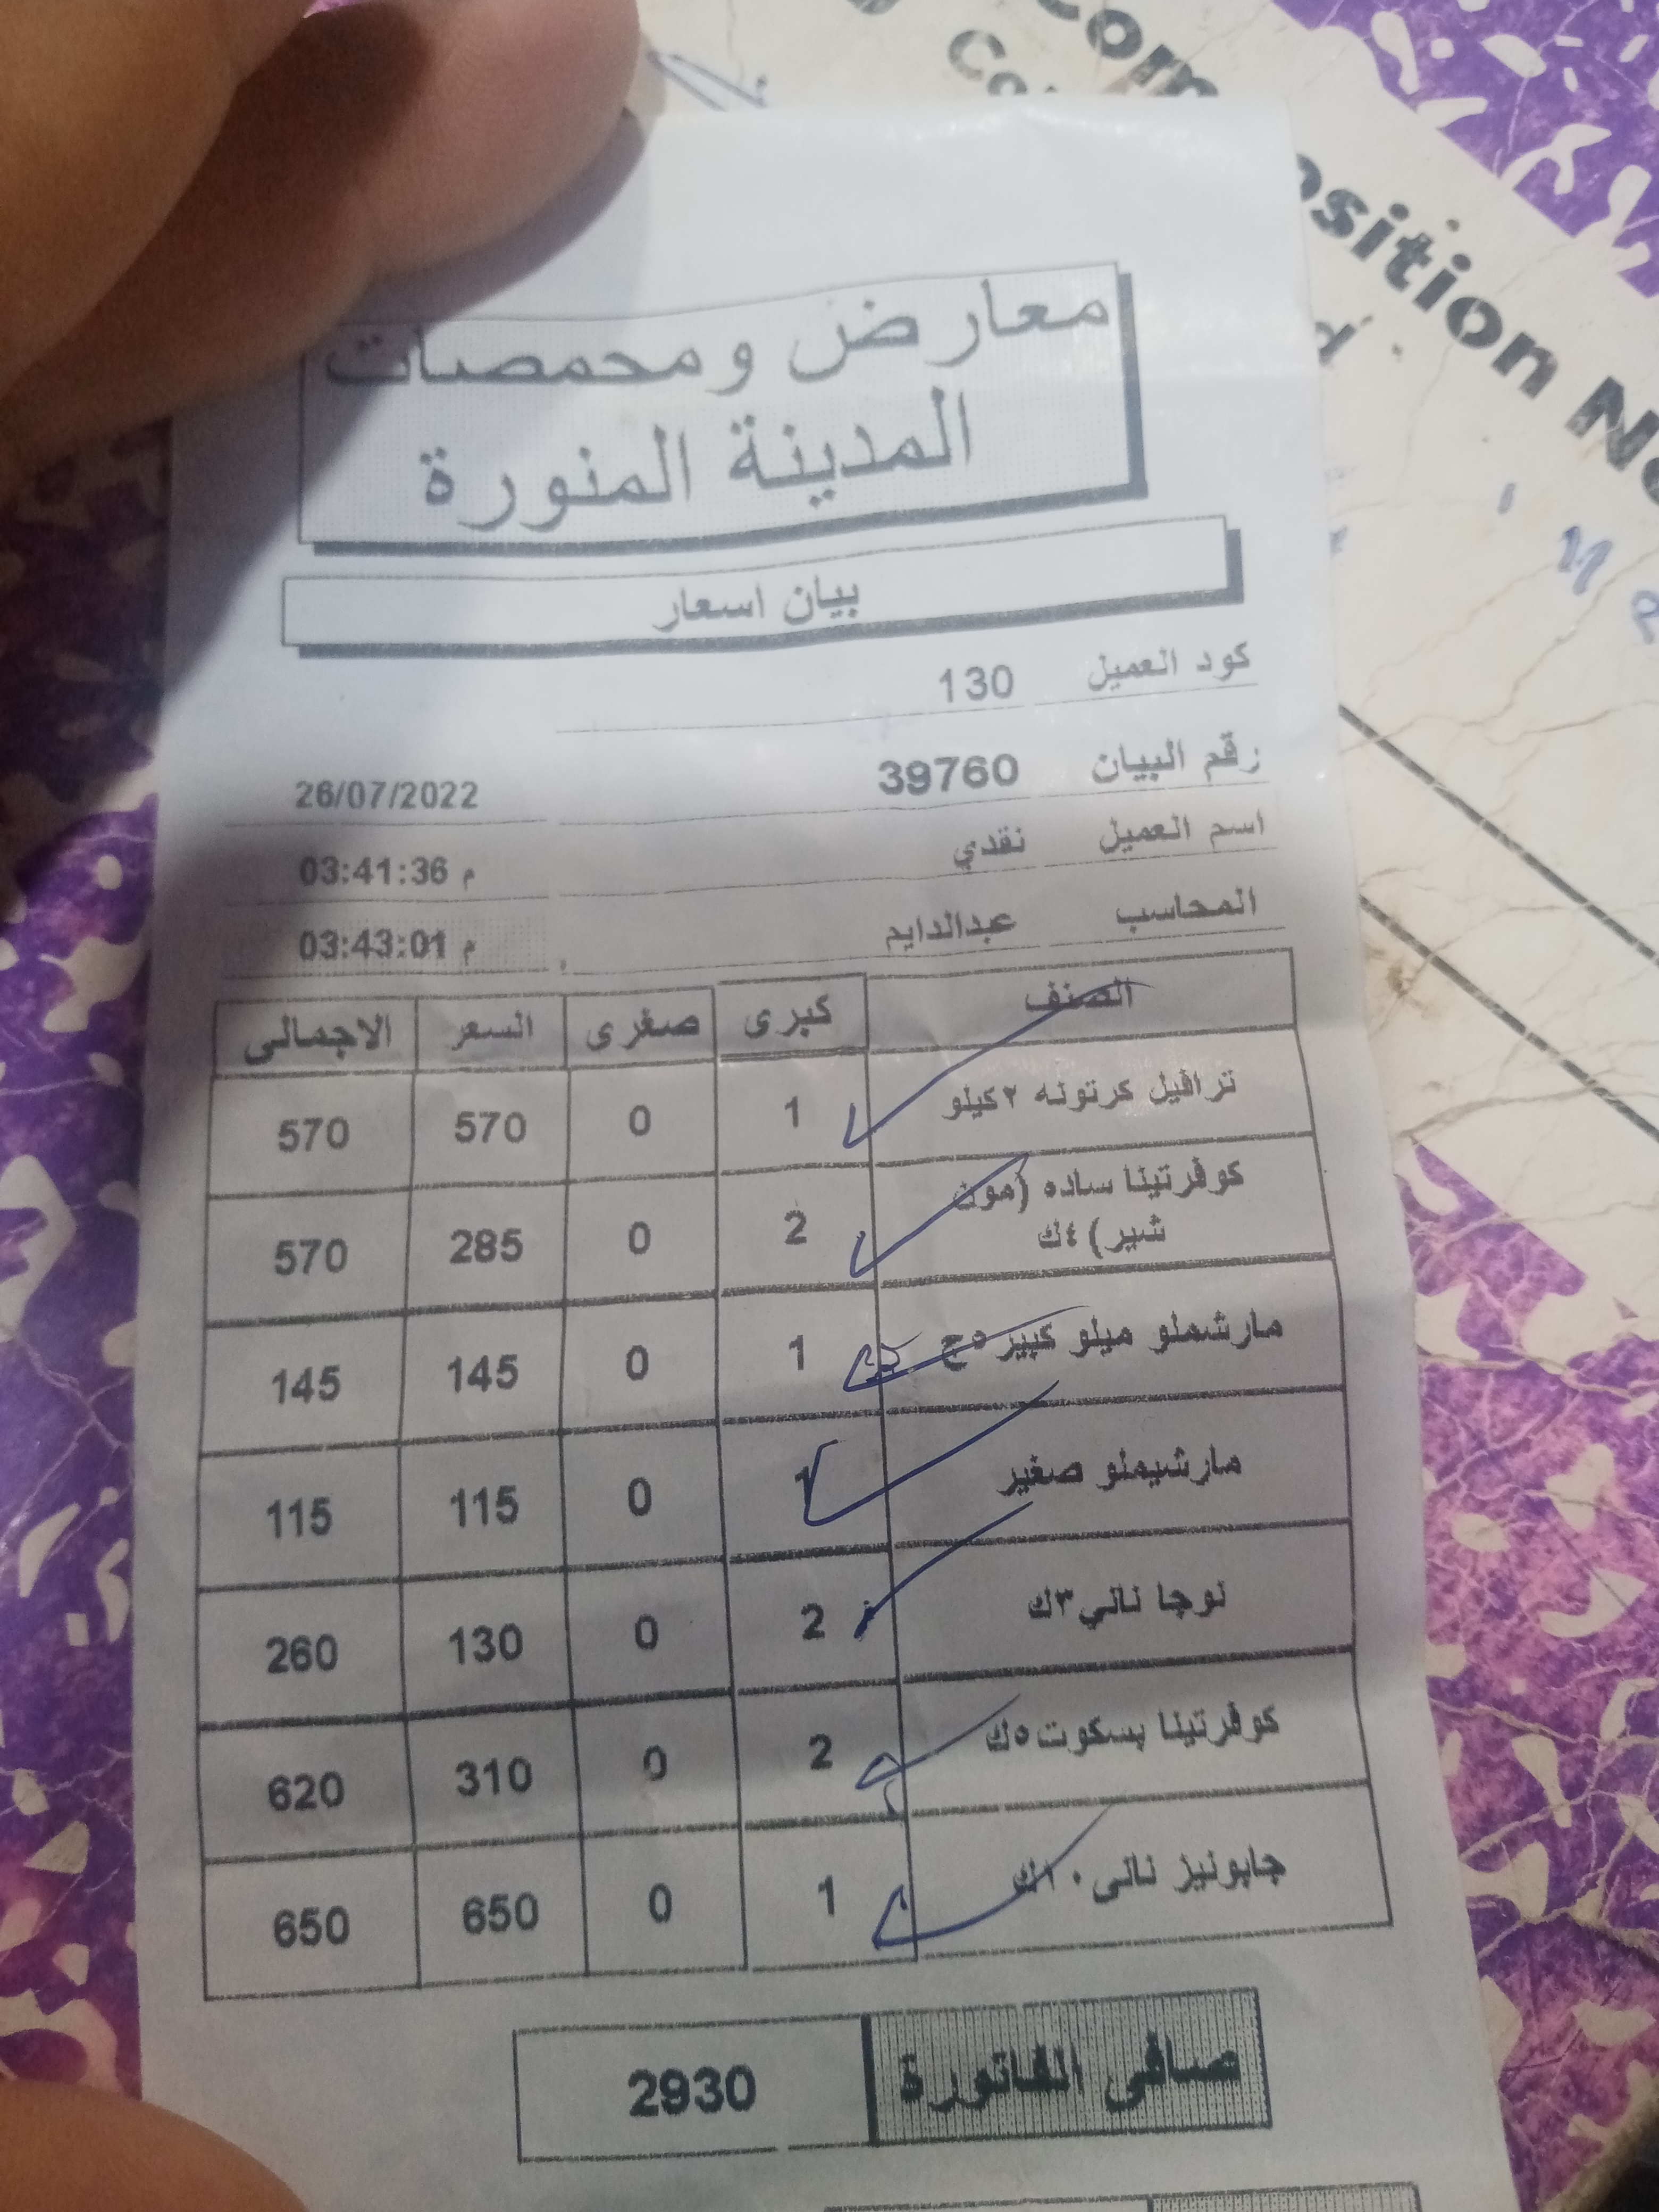 معارض ومحمصات
المدينة المنورة
بيان اسعار
كود العميل 130
رقم البيان 39760 26/07/2022
اسم العميل نقدي 03:41:36 م
المحاسب عبدالدايم 03:43:01 م
الصنف كبرى صغرى السعر الاجمالى
ترافيل كرتونه ٢كيلو 1 0 570 570
كوفرتينا ساده (مون
شير) ٤ك 2 0 285 570
مارشملو ميلو كبير ٥ج 1 0 145 145
مارشيملو صغير 1 0 115 115
نوجا نالي ٣ك 2 0 130 260
كوفرتينا بسكوت ٥ك 2 0 310 620
جابونيز نالى ١٠ك 1 0 650 650
صافى الفاتورة 2930